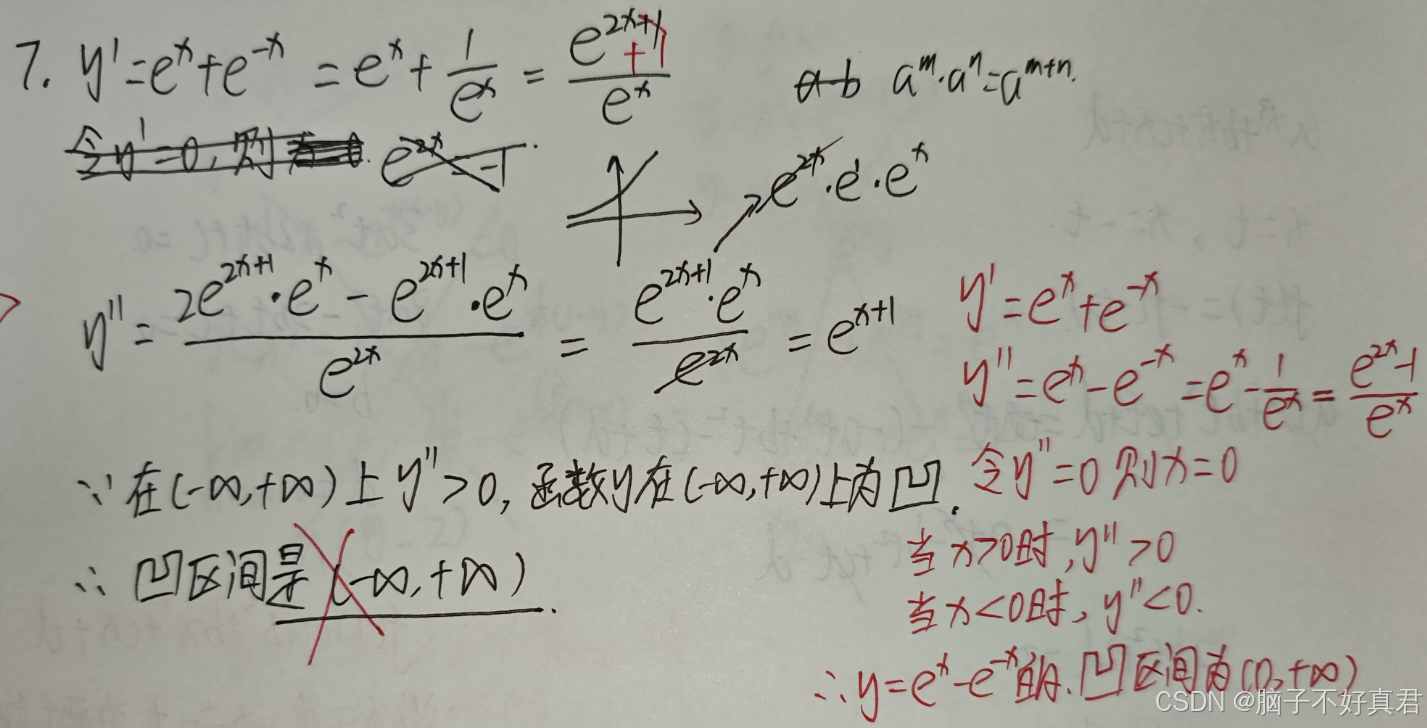 7. y'=eˣ+e⁻ˣ = eˣ + 1/eˣ = e²ˣ⁺¹+1/eˣ
a-b aᵐ·aⁿ=aᵐ⁺ⁿ.
令y'=0, 则 e²ˣ=-1.
e²ˣ·e¹·eˣ
y'' = 2e²ˣ⁺¹·eˣ - e²ˣ⁺¹·eˣ/e²ˣ = e²ˣ⁺¹·eˣ/e²ˣ = eˣ⁺¹
∵在(-∞,+∞)上y''>0,函数y在(-∞,+∞)上为凹.
∴凹区间是(-∞,+∞).
y'=eˣ+e⁻ˣ
y''=eˣ-e⁻ˣ=eˣ-1/eˣ=e²ˣ-1/eˣ
令y''=0则x=0
当x>0时,y''>0
当x<0时,y''<0.
∴y=eˣ-e⁻ˣ的.凹区间为(0,+∞)
CSDN @脑子不好真君